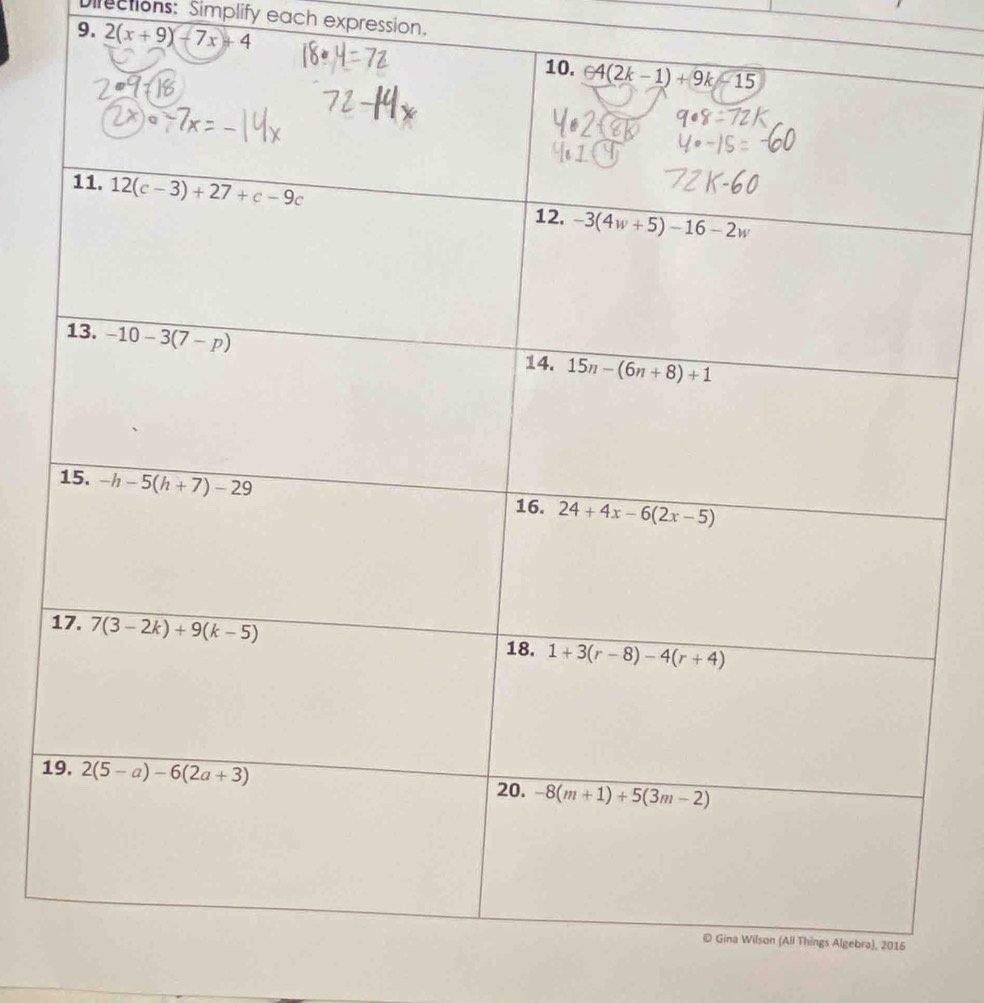 Directions: Simplify each expression.
9. 2(x + 9) - 7x + 4
18•4=72
2•9=18
72-14x
2x•-7x=-14x
10. -4(2k - 1) + 9k - 15
4•2=8k
9•8=72K
4•1=4
4•-15=-60
72K-60
11. 12(c - 3) + 27 + c - 9c
12. -3(4w + 5) - 16 - 2w
13. -10 - 3(7 - p)
14. 15n - (6n + 8) + 1
15. -h - 5(h + 7) - 29
16. 24 + 4x - 6(2x - 5)
17. 7(3 - 2k) + 9(k - 5)
18. 1 + 3(r - 8) - 4(r + 4)
19. 2(5 - a) - 6(2a + 3)
20. -8(m + 1) + 5(3m - 2)
© Gina Wilson (All Things Algebra), 2016